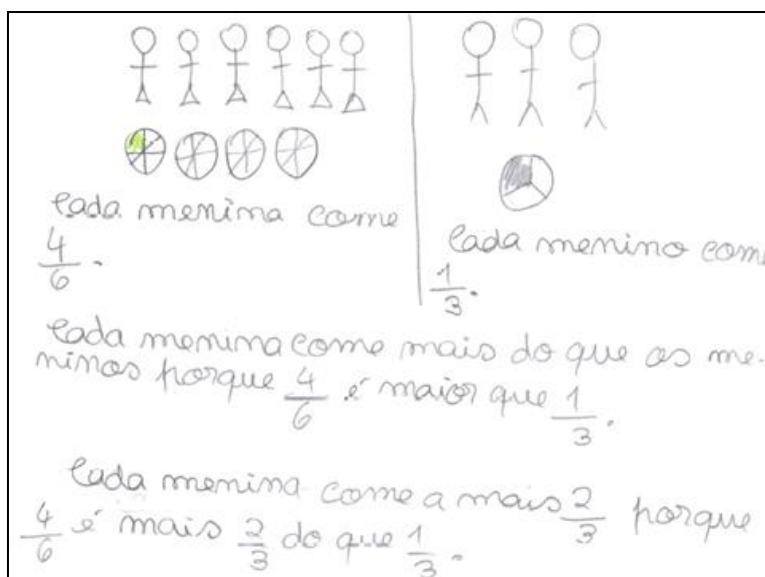 Cada menina come
4/6.
Cada menino come
1/3.
Cada menina come mais do que os me-
ninos porque 4/6 é maior que 1/3.
Cada menina come a mais 2/3 porque
4/6 é mais 2/3 do que 1/3.